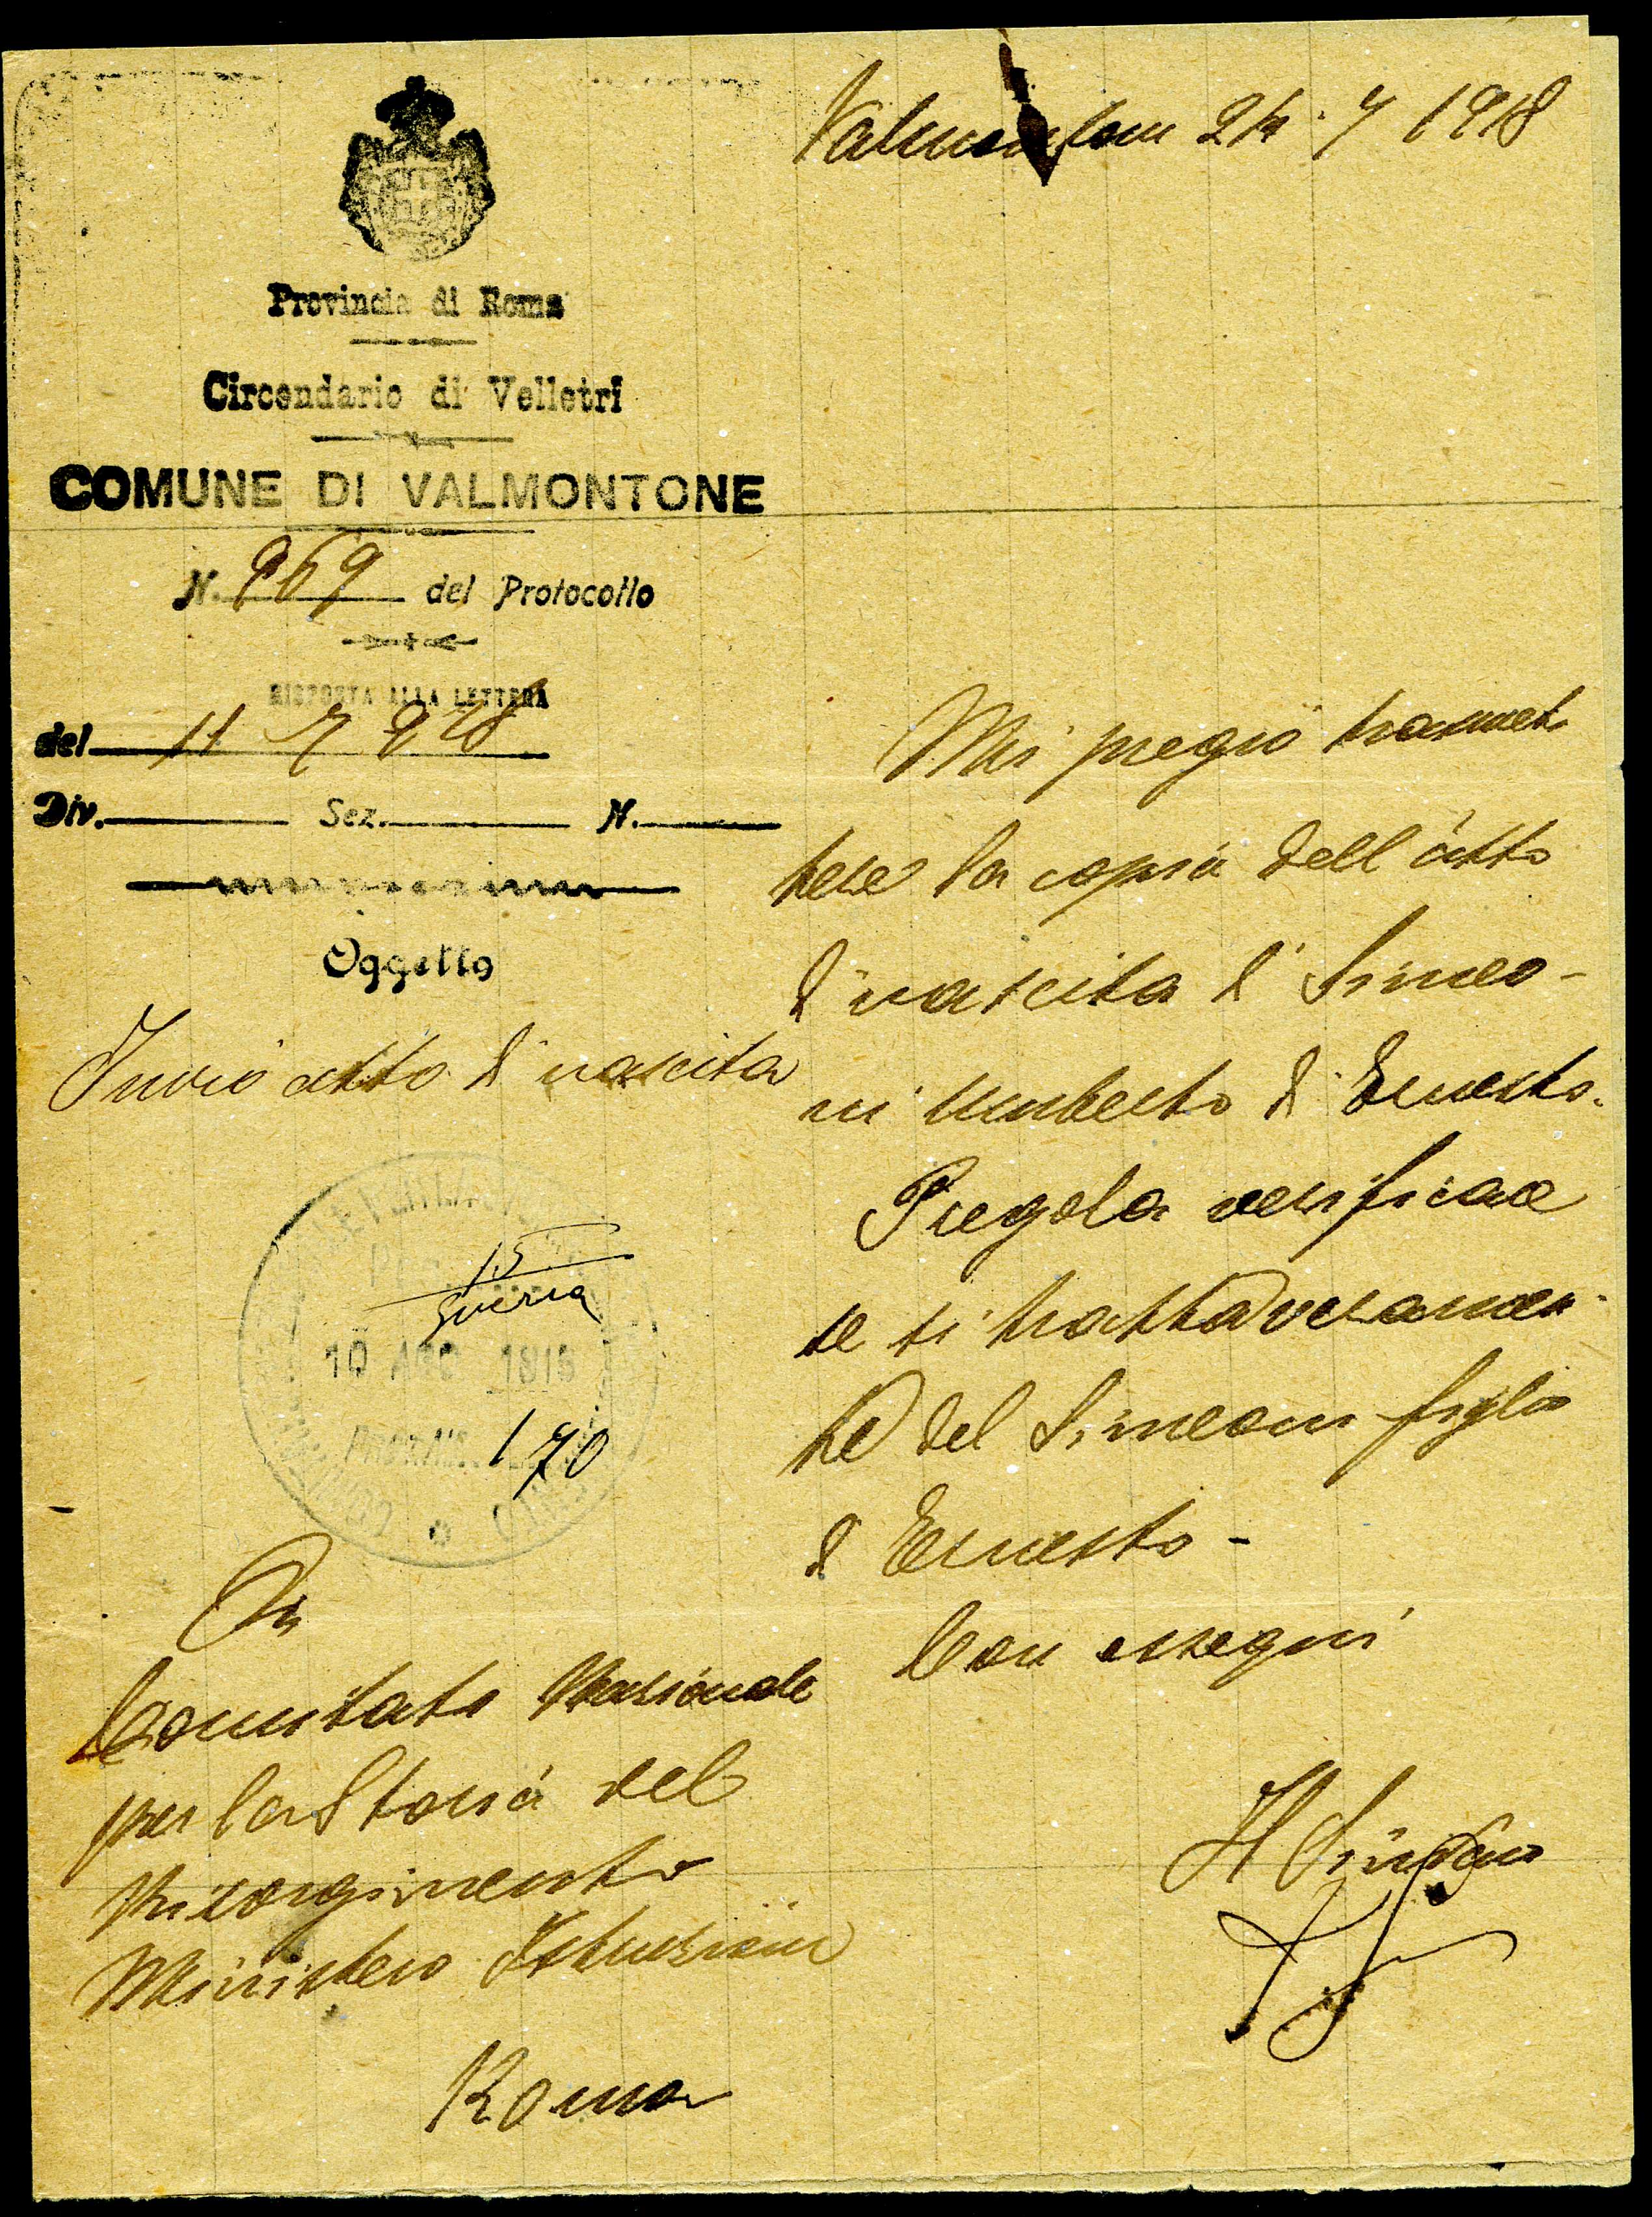 Valmontone 24 · 7 1918
Provincia di Roma
Circondario di Velletri
COMUNE DI VALMONTONE
N. 969 del Protocollo
RISPOSTA ALLA LETTERA
del 11 7 918
Div. Sez. N.
Oggetto
Invio atto di nascita
15
Guerra
10 AGO 1918
170
On
Comitato Nazionale
per la Storia del
Risorgimento
Ministero Istruzione
Roma
Mi pregio trasmet
tere la copia dell'atto
di nascita di Simeo-
ni Umberto di Ernesto.
Pregola verificare
se si tratta veramen-
te del Simeoni figlio
di Ernesto -
Con ossequi
Il Sindaco